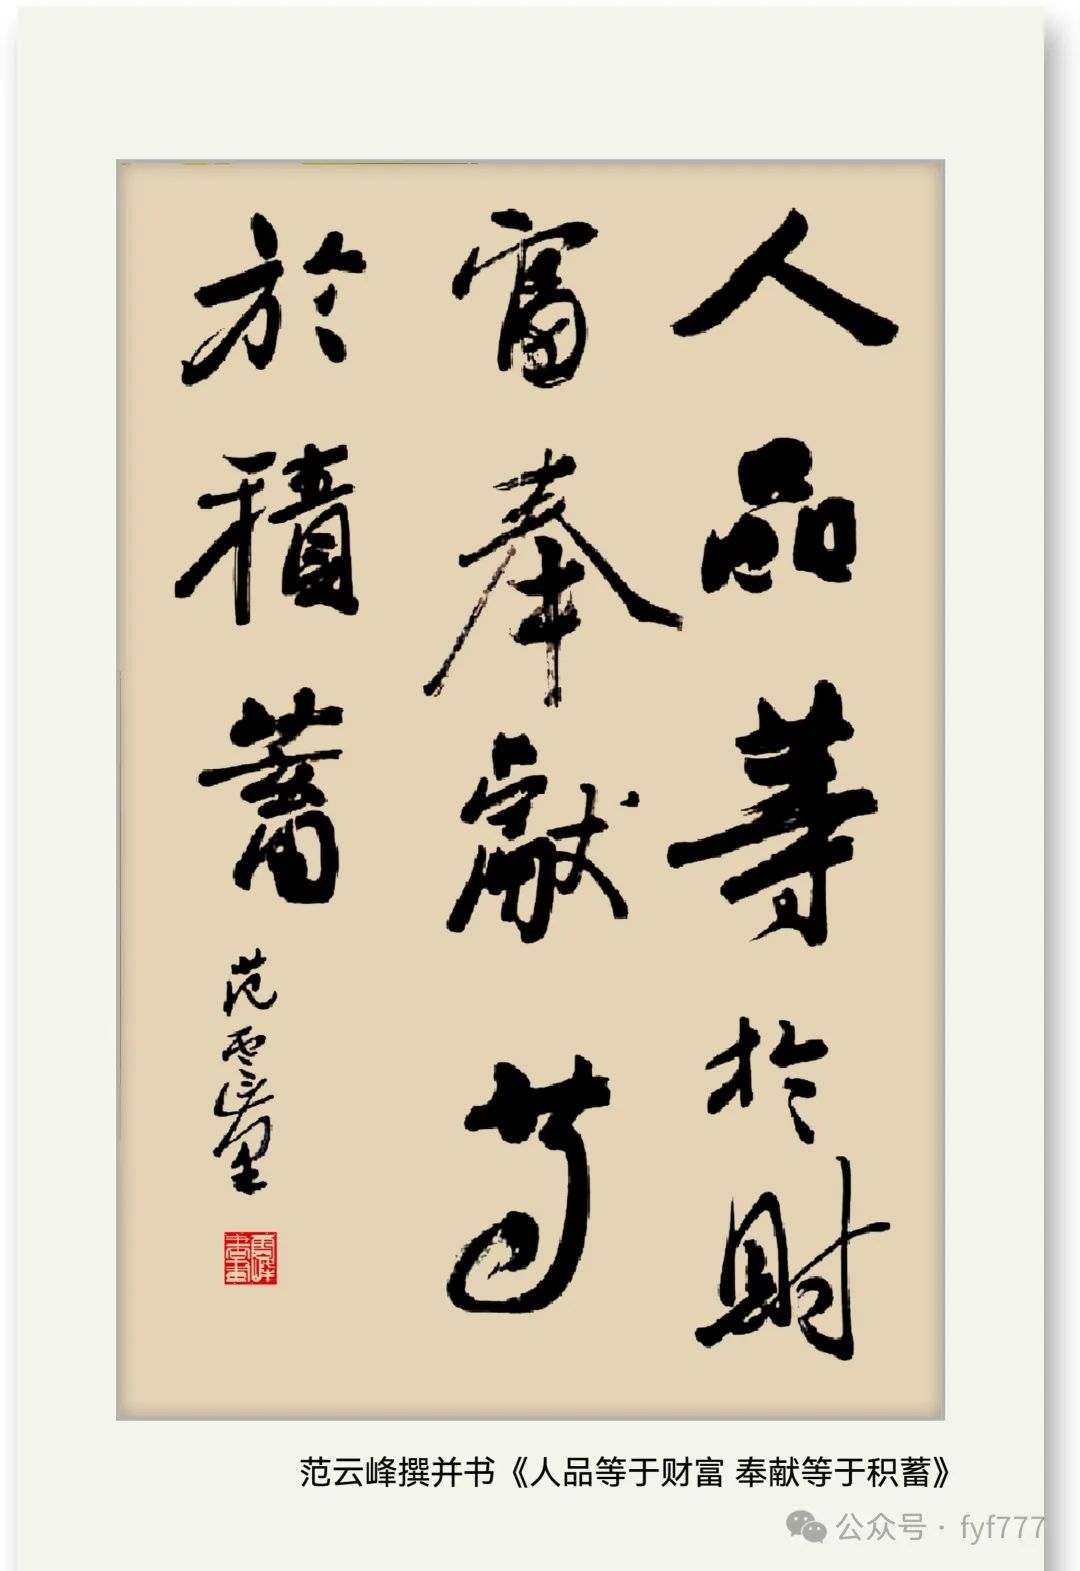 人品等於財
富奉獻等
於積蓄
范雲峰
雲峰書畫
范云峰撰并书《人品等于财富 奉献等于积蓄》
公众号·fyf777